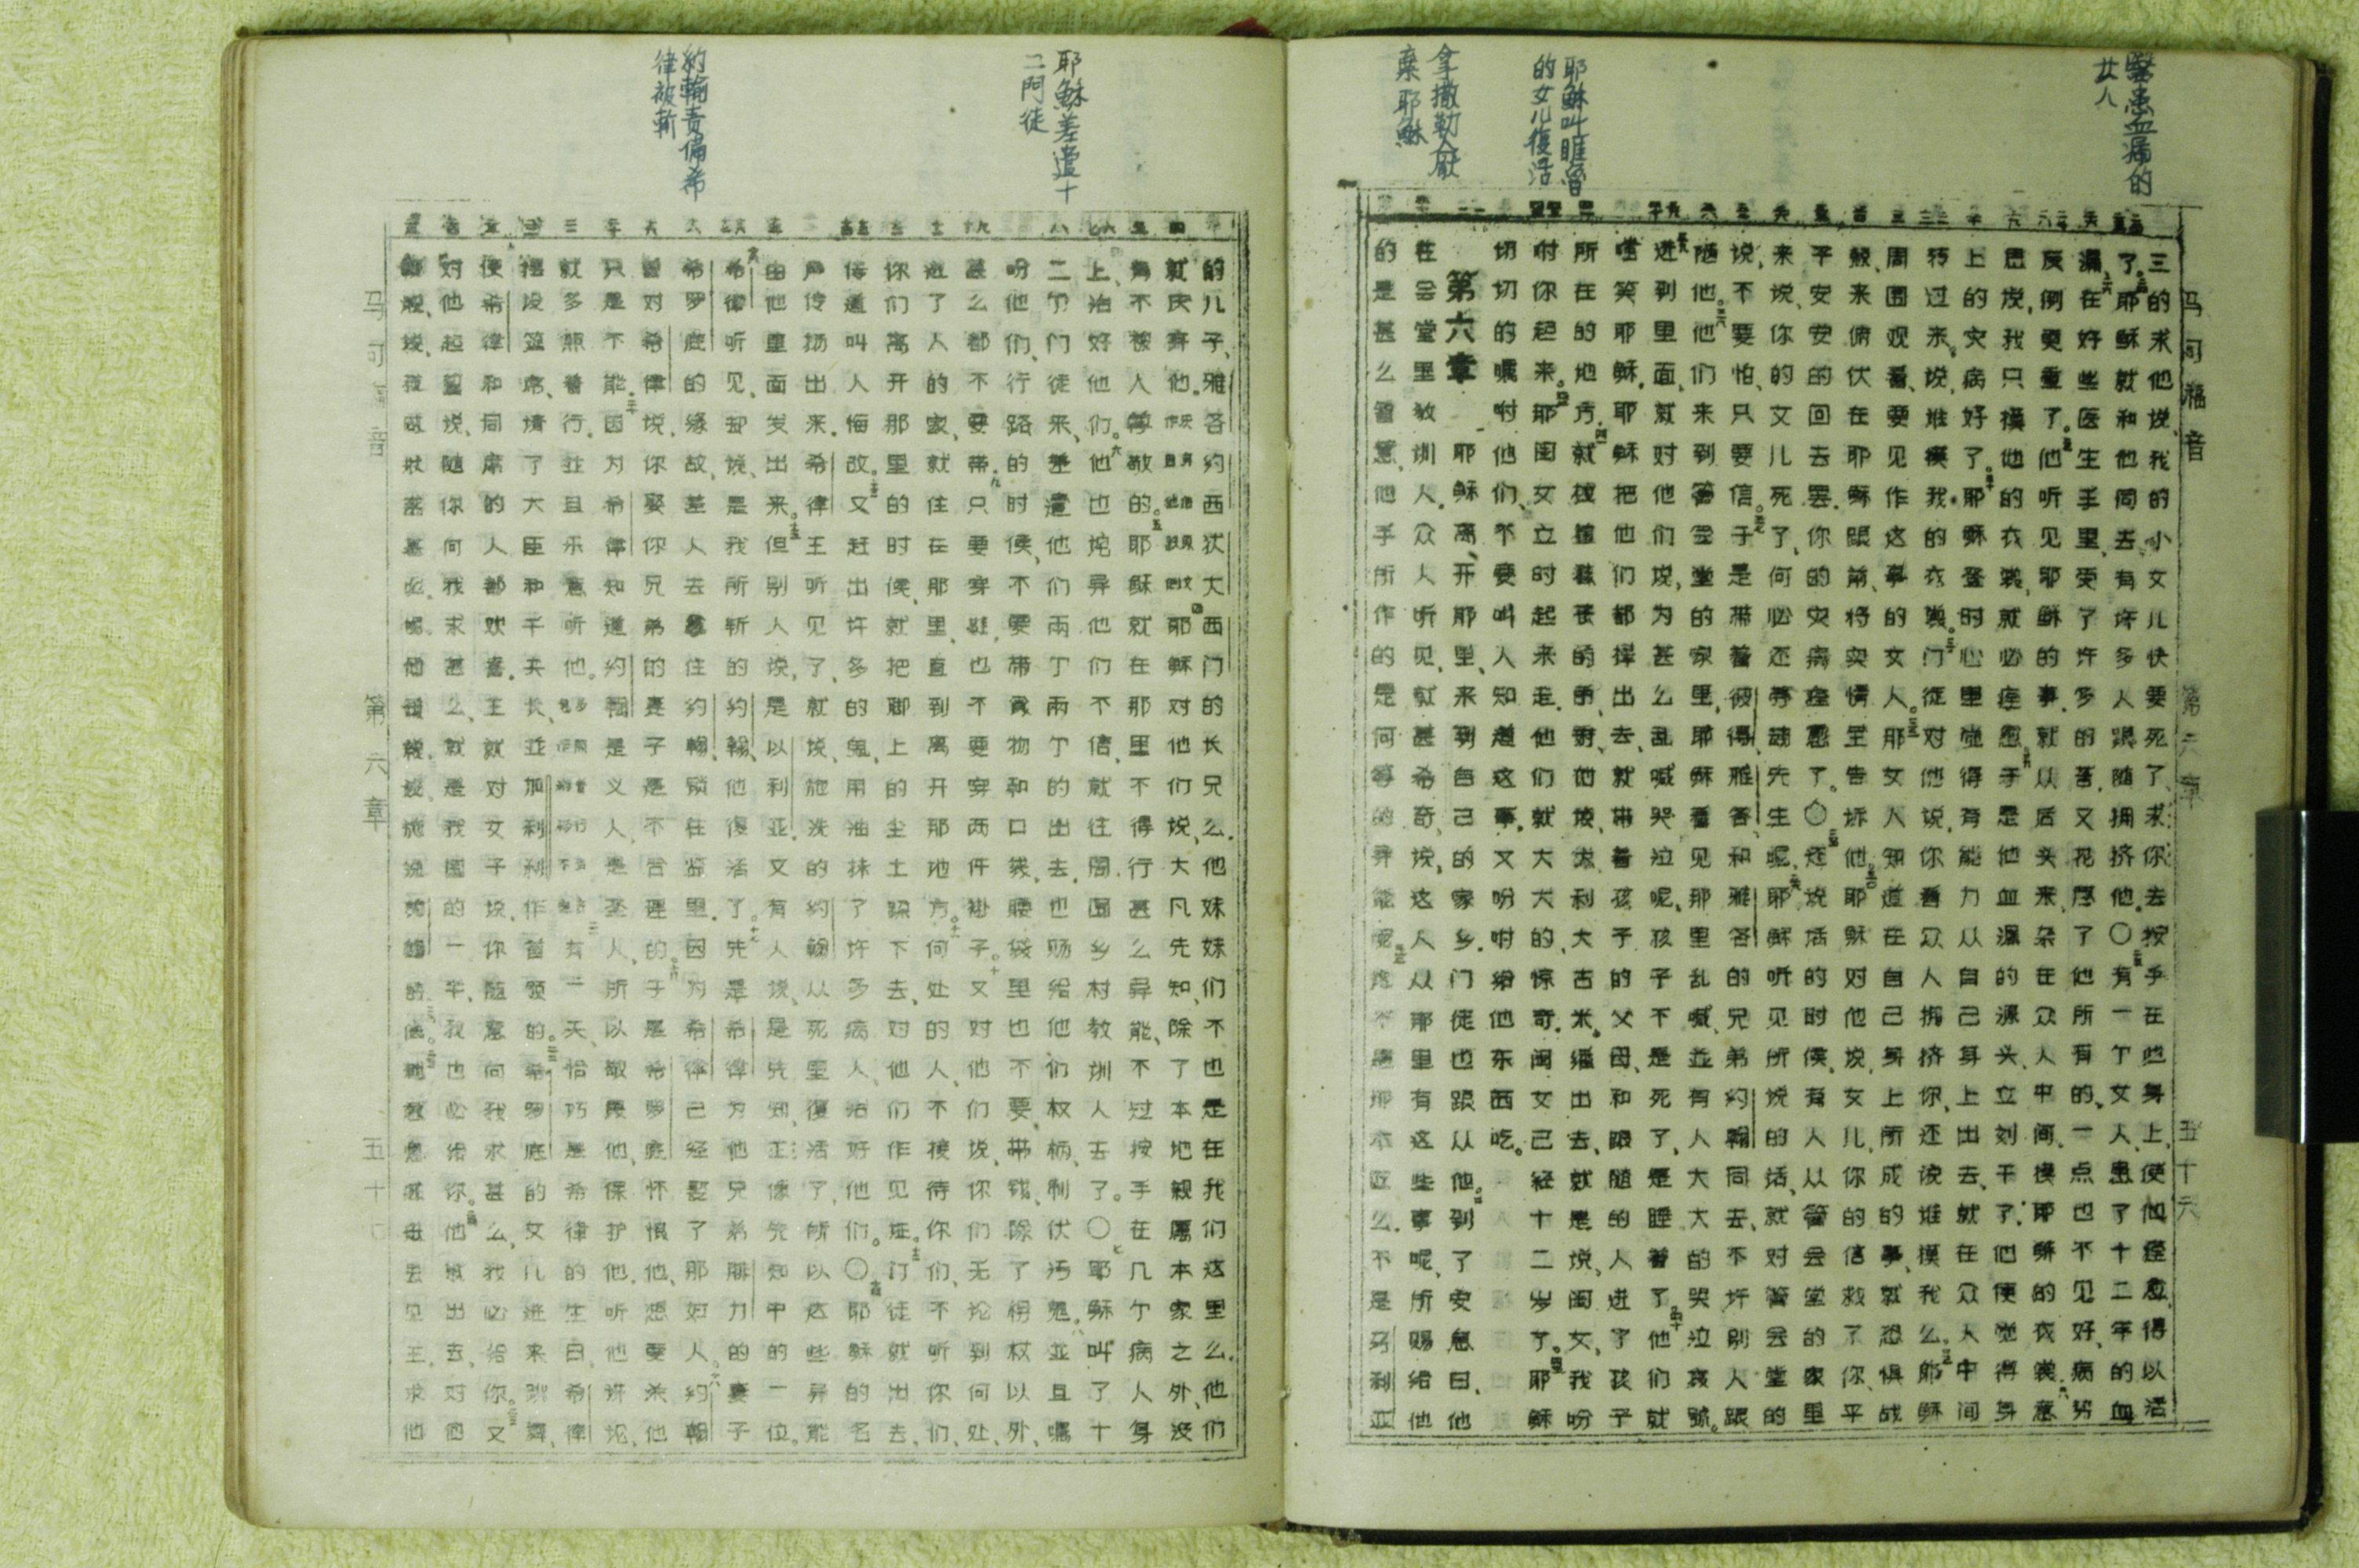 醫患血漏的
女人
耶穌叫睚魯
的女儿復活
拿撒勒人厭
棄耶穌
马可福音 第六章 五十六
三的求他说、我的小女儿快要死了、求你去按手在他身上、使他痊愈得以活
了。耶稣就和他同去、有许多人跟随拥挤他。〇有一个女人、患了十二年的血
漏、在好些医生手里、受了许多的苦、又花尽了他所有的、一点也不见好、病势
反倒更重了。他听见耶稣的事、就从后头来、杂在众人中间、摸耶稣的衣裳、意
思说、我只摸他的衣裳、就必痊愈。于是他血漏的源头、立刻干了。他便觉得身
上的灾病好了。耶稣登时心里觉得有能力从自己身上出去、就在众人中间
转过来、说、谁摸我的衣裳。门徒对他说、你看众人拥挤你、还说谁摸我么。耶稣
周围观看、要见作这事的女人。那女人知道在自己身上所成的事、就恐惧战
兢、来俯伏在耶稣跟前、将实情全告诉他。耶稣对他说、女儿、你的信救了你、平
平安安的回去罢。你的灾病痊愈了。〇还说话的时候、有人从管会堂的家里
来说、你的女儿死了、何必还劳动先生呢。耶稣听见所说的话、就对管会堂的
说、不要怕、只要信。于是带着彼得、雅各、和雅各的兄弟约翰同去、不许别人跟
随他。他们来到管会堂的家里、耶稣看见那里乱喊、並有人大大的哭泣哀号。
进到里面、就对他们说、为甚么乱喊哭泣呢、孩子不是死了、是睡着了。他们就
嗤笑耶稣。耶稣把他们都撵出去、就带着孩子的父母、和跟随的人、进了孩子
所在的地方、就拉着孩子的手、对他说、大利大古米。繙出去、就是说、闺女、我吩
咐你起来。那闺女立时起来走。他们就大大的惊奇。闺女已经十二岁了。耶稣
切切的嘱咐他们、不要叫人知道这事、又吩咐给他东西吃。
第六章 耶稣离开那里、来到自己的家乡。门徒也跟从他。到了安息日、他
在会堂里教训人。众人听见、就甚希奇、说、这人从那里有这些事呢、所赐给他
的是甚么智慧、他手所作的是何等的异能呢。这不是那木匠么。不是马利亚
耶稣差遣十
二门徒
約翰責備希
律被斬
的儿子、雅各约西犹大西门的长兄么。他妹妹们不也是在我们这里么。他们
就厌弃他。耶稣对他们说、大凡先知、除了本地亲属本家之外、没
有不被人尊敬的。耶稣就在那里不得行甚么异能、不过按手在几个病人身
上、治好他们。他也诧异他们不信、就往周围乡村教训人去了。〇耶稣叫了十
二个门徒来、差遣他们两个两个的出去。也赐给他们权柄、制伏污鬼。並且嘱
吩他们、行路的时候、不要带食物和口袋、腰袋里也不要带钱、除了拐杖以外、
甚么都不要带。只要穿鞋、也不要穿两件褂子。又对他们说、你们无论到何处、
进了人的家、就住在那里、直到离开那地方。何处的人、不接待你们、不听你们、
你们离开那里的时候、就把脚上的尘土跺下去、对他们作见证。门徒就出去、
传道叫人悔改。又赶出许多的鬼、用油抹了许多病人、治好他们。〇耶稣的名
声传扬出来。希律王听见了、就说、施洗的约翰从死里復活了、所以这些异能
由他里面发出来。但别人说、是以利亚。又有人说、是先知、正像先知中的一位。
希律听见、却说、是我所斩的约翰、他復活了。先是希律为他兄弟腓力的妻子
希罗底的缘故、差人去拿住约翰、锁在监里。因为希律已经娶了那妇人。约翰
曾对希律说、你娶你兄弟的妻子是不合理的。于是希罗底怀恨他、想要杀他、
只是不能。因为希律知道约翰是义人、是圣人、所以敬畏他、保护他、听他
就多照着行。並且乐意听他。有一天、恰巧是希律的生日、希律
摆设筵席、请了大臣和千夫长、並加利利作首领的。希罗底的女儿进来跳舞、
使希律和同席的人都欢喜。王就对女子说、你随意向我求甚么、我必给你。又
对他起誓说、随你向我求甚么、就是我国的一半、我也必给你。他就出去对他
求甚么呢。他母亲说、施洗约翰的头。他就急忙进去见王、求他
马可福音 第六章 五十